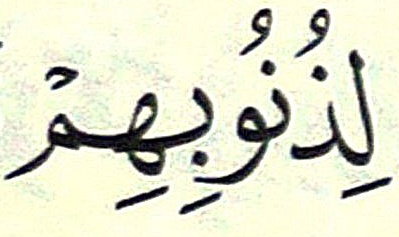 لِذُنُوبِهِمْ